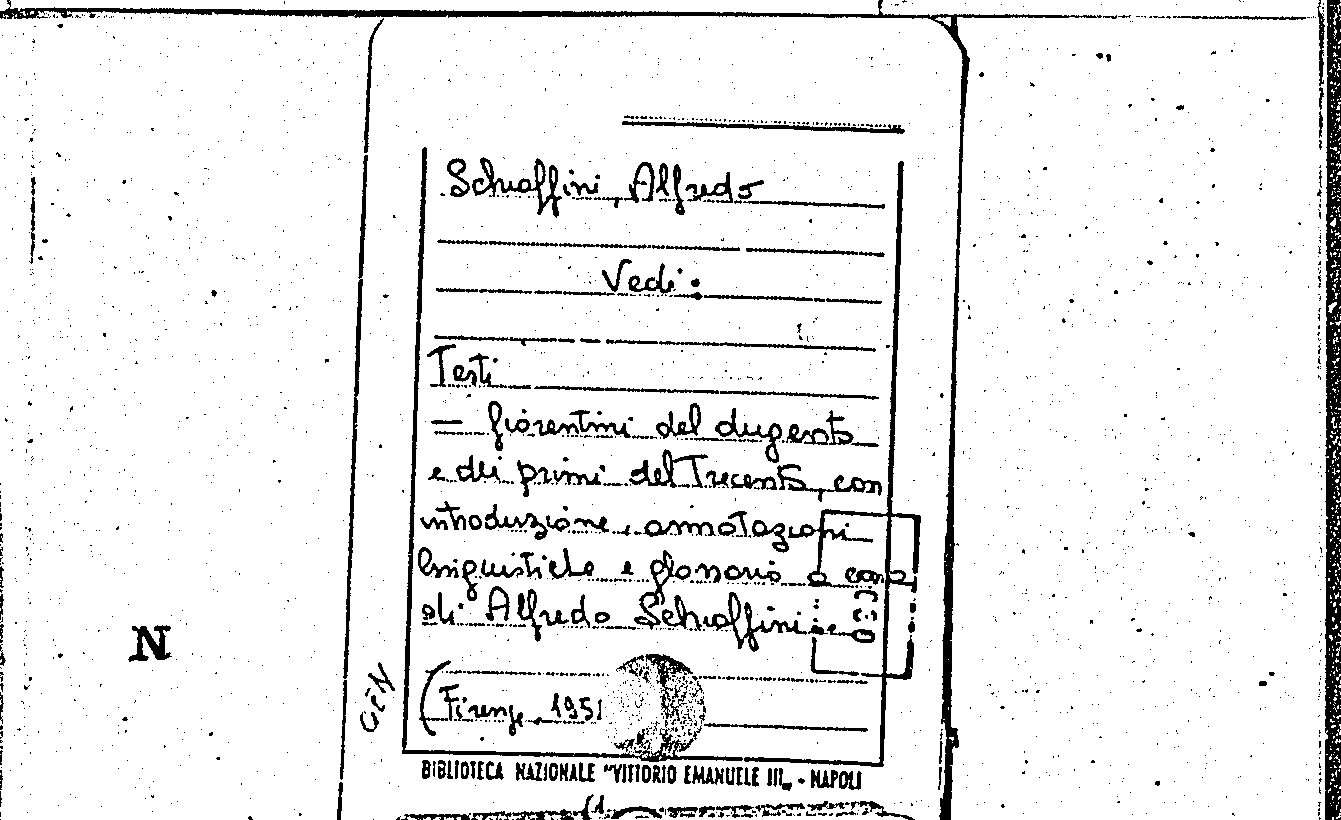 Schiaffini, Alfredo
Vedi:
Testi
— fiorentini del dugento
e dei primi del Trecento, con
introduzione, annotazioni
linguistiche e glossario a cura
di Alfredo Schiaffini.
(Firenze, 1951
GEN
N
BIBLIOTECA NAZIONALE "VITTORIO EMANUELE III„ - NAPOLI